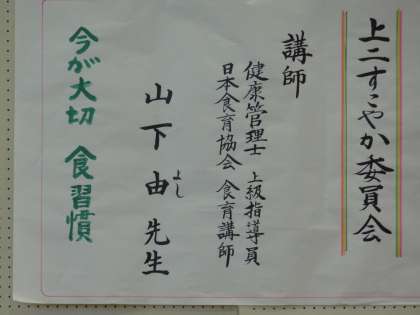 上二すこやか委員会
講師
健康管理士 上級指導員
日本食育協会 食育講師
山下由先生
よし
今が大切 食習慣